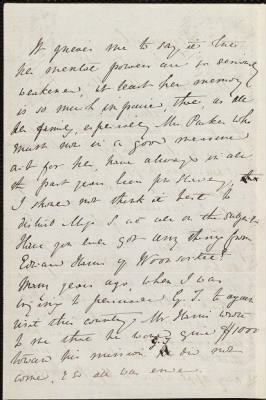 It grieves me to say it but
her mental powers are so seriously
weakened, at least her memory
is so much impaired, that, as all
her family, especially Mr Parker who
must now in a good measure
act for her, have always in all
past years been pro slavery,
I should not think it best to
Miss J. at all on the subject.
Have you ever got any thing from
Edward Harris of Woonsocket?
Many years ago, when I was
trying to persuade G. T. to again
visit this country, Mr Harris wrote
to me that he would give $1000
toward his mission. G. T. did not
come, & so all was over.